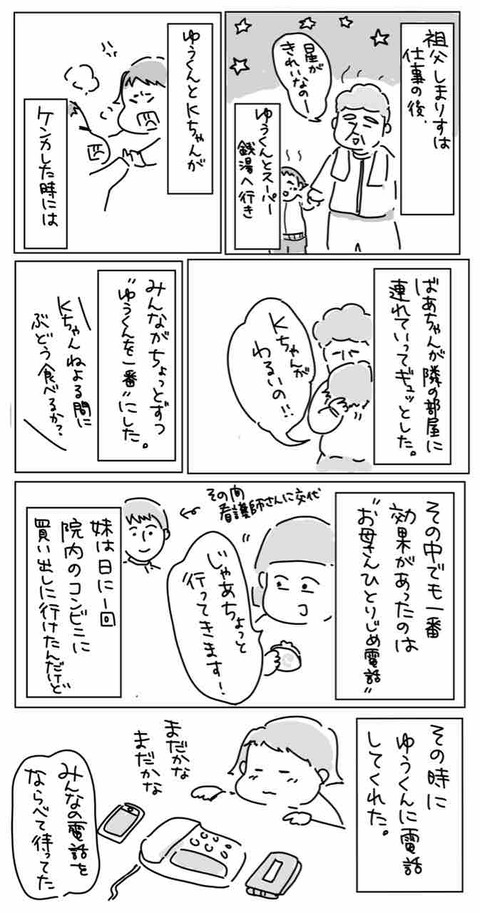 祖父しまりすは
仕事の後、
星が
きれいなのー
ゆうくんとスーパー
銭湯へ行き
ゆうくんとKちゃんが
ケンカした時には
ばあちゃんが隣の部屋に
連れていってギュッとした。
Kちゃんが
わるいの!!
みんながちょっとずつ
"ゆうくんを一番"にした。
Kちゃんねよる間に
ぶどう食べるか?
その中でも一番
効果があったのは
"お母さんひとりじめ電話"
その間
看護師さんに交代
じゃあちょっと
行ってきます!
妹は日に一回
院内のコンビニに
買い出しに行けたんだけど
その時に
ゆうくんに電話
してくれた。
まだかな
まだかな
みんなの電話を
ならべて待ってた